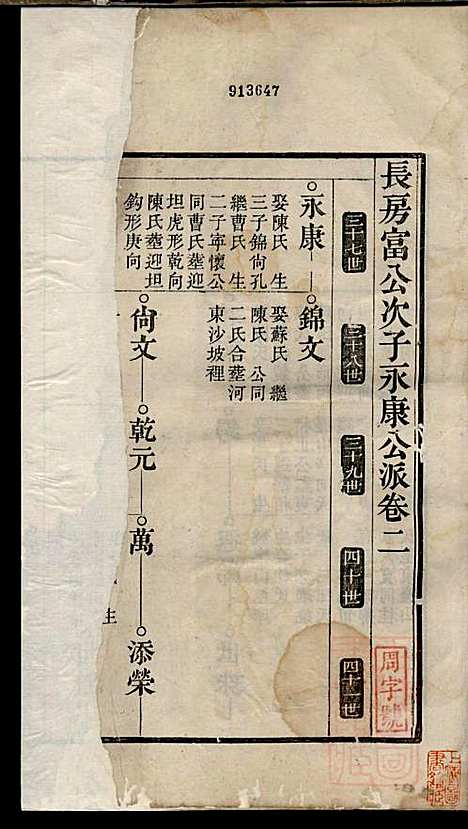 913647
長房富公次子永康公派卷二
三十七世
三十八世
三十九世
四十世
四十一世
永康
錦文
娶陳氏 生
三子錦尙孔
繼曹氏 生
二子寧懷公
同曹氏塟迎
坦虎形乾向
陳氏塟迎坦
鈎形庚向
娶蘇氏 繼
陳氏 公同
二氏合塟河
東沙坡裡
尙文
乾元
萬
添榮
生
周字號